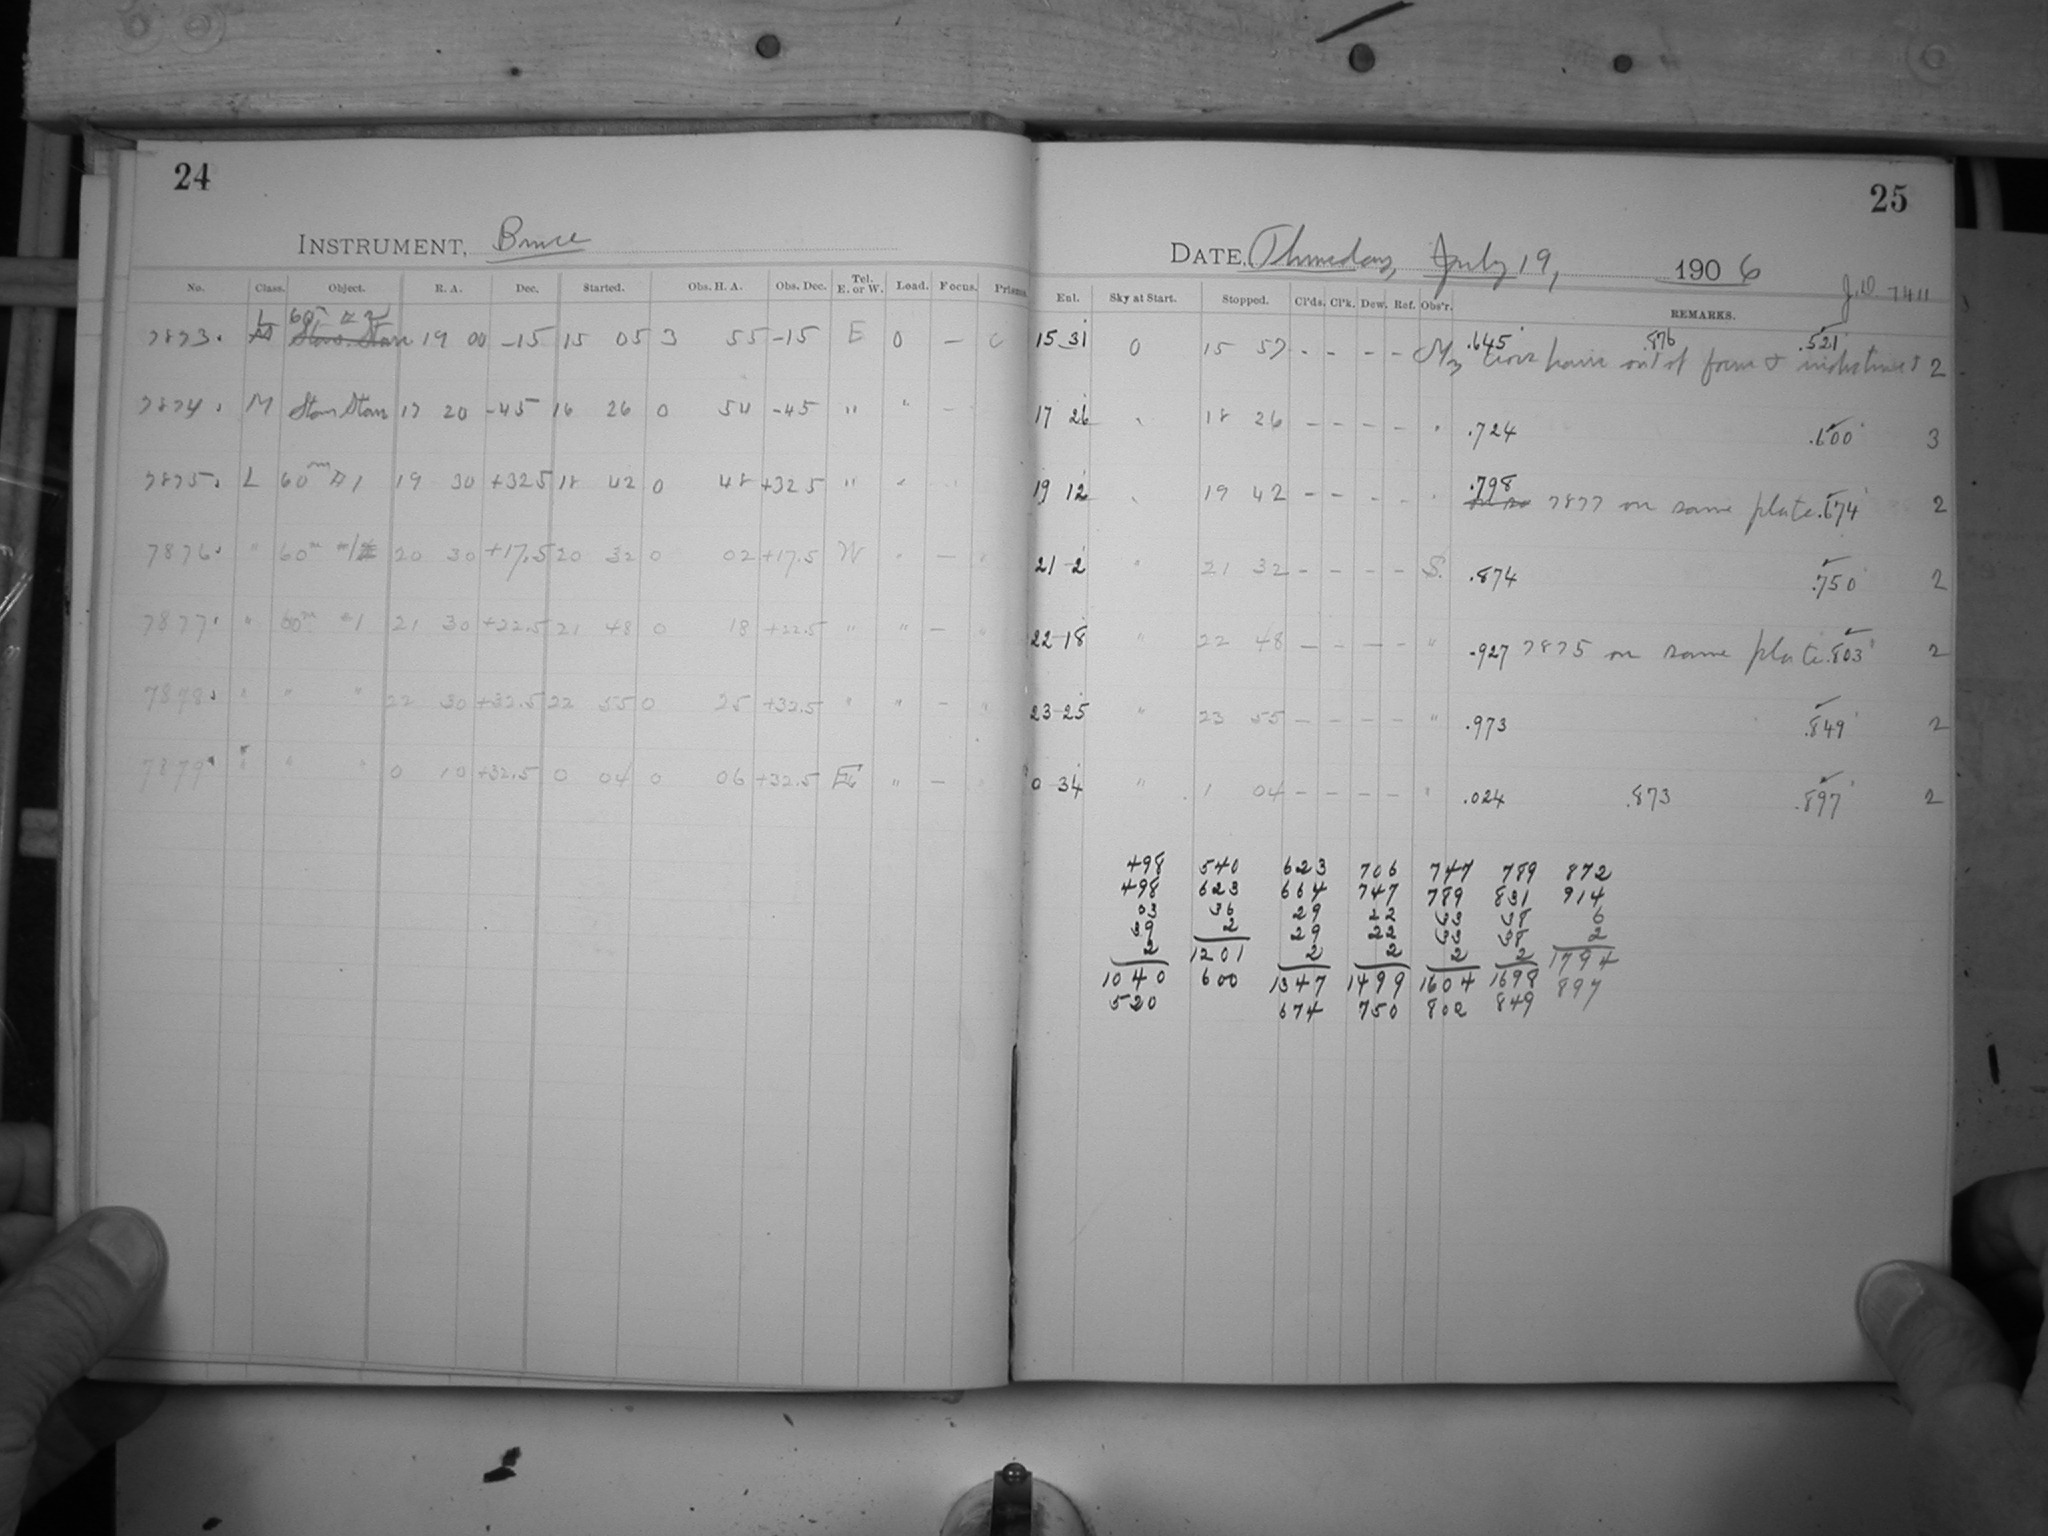 24
INSTRUMENT, Bruce
No. Class. Object. R. A. Dec. Started. Obs. H. A. Obs. Dec. Tel. E. or W. Load. Focus. Prisms.
L 60m #2
7873. M Stars Stars 19 00 -15 15 05 3 55 -15 E 0 — 0
7874. M Stars Stars 17 20 -45 16 26 0 54 -45 " " —
7875. L 60m #1 19 30 +32.5 18 42 0 48 +32.5 " "
7876. " 60m #1 20 30 +17.5 20 32 0 02 +17.5 W " — "
7877. " 60m #1 21 30 +22.5 21 48 0 18 +22.5 " " — "
7878. " " " 22 30 +32.5 22 55 0 25 +32.5 " " — "
7879 " " " 0 10 +32.5 0 04 0 06 +32.5 E " — "
25
DATE, Thursday, July 19, 1906
J.D. 7411
Enl. Sky at Start. Stopped. Cl'ds. Cl'k. Dew. Ref. Obs'r. REMARKS.
15 31 0 15 57 - - - - .645 .876 .521
out of form & 2
17 26 18 26 - - - - .724 .600 3
19 12 19 42 - - - - .798
7877 on same plate .674 2
21-2 " 21 32 - - - - S. .874 .750 2
22-18 " 22 48 - - - - " .927 7875 on same plate .803 2
23-25 " 23 55 - - - - " .973 .849 2
0 34 " 1 04 - - - - " .024 .873 .897 2
498 540 623 706 747 789 872
498 623 664 747 789 831 914
03 36 29 22 33 38 6
39 2 29 22 33 38 2
2 1201 2 2 2 2 1794
1040 600 1347 1499 1604 1698 897
520 674 750 802 849